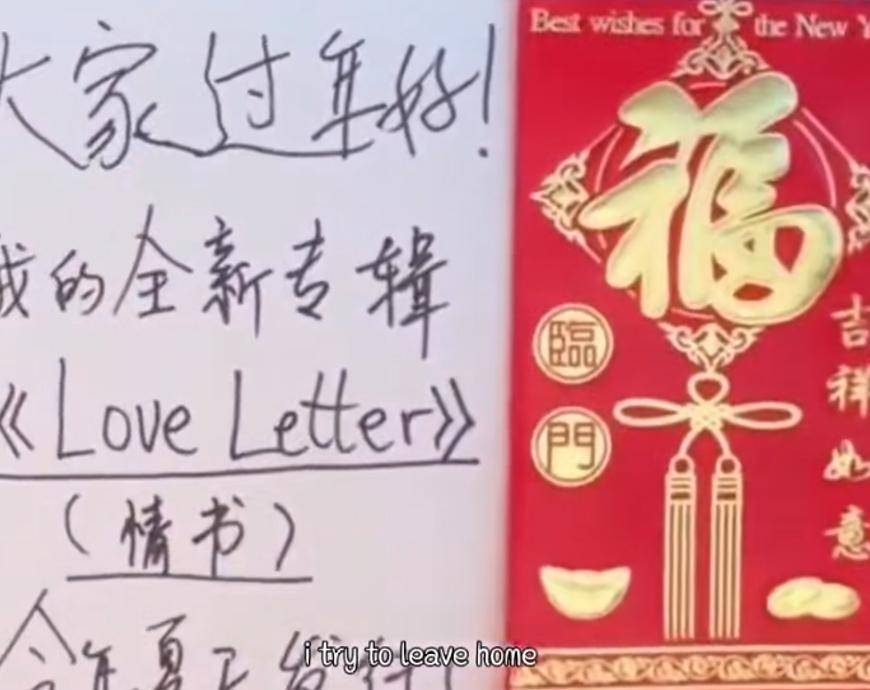 大家过年好!
我的全新专辑
《Love Letter》
(情书)
今年夏天发行!
Best wishes for the New Y
福
臨
門
吉祥如意
i try to leave home